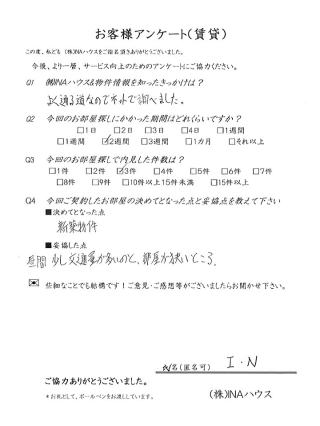 お客様アンケート(賃貸)
この度、私ども (株)INAハウスをご指名頂きありがとうございました。
今後、より一層、サービス向上のためのアンケートにご協力ください。
Q1 (株)INAハウス&物件情報を知ったきっかけは?
よく通る道なのでネットで調べました。
Q2 今回のお部屋探しにかかった期間はどれくらいですか?
□1日 □2日 □3日 □4日 □1週間
□1週間 ☑2週間 □3週間 □1カ月 □それ以上
Q3 今回のお部屋探しで内見した件数は?
□1件 □2件 ☑3件 □4件 □5件 □6件 □7件
□8件 □9件 □10件以上15件未満 □15件以上
Q4 今回ご契約したお部屋の決めてとなった点と妥協点を教えて下さい
■決めてとなった点
新築物件
■妥協した点
昼間 少し交通量が多いのと、部屋が狭いところ。
些細なことでも結構です!ご意見・ご感想等がございましたらお聞かせ下さい。
氏名(匿名可) I・N
ご協力ありがとうございました。
*お礼として、ボールペンをお渡ししています。
(株)INAハウス